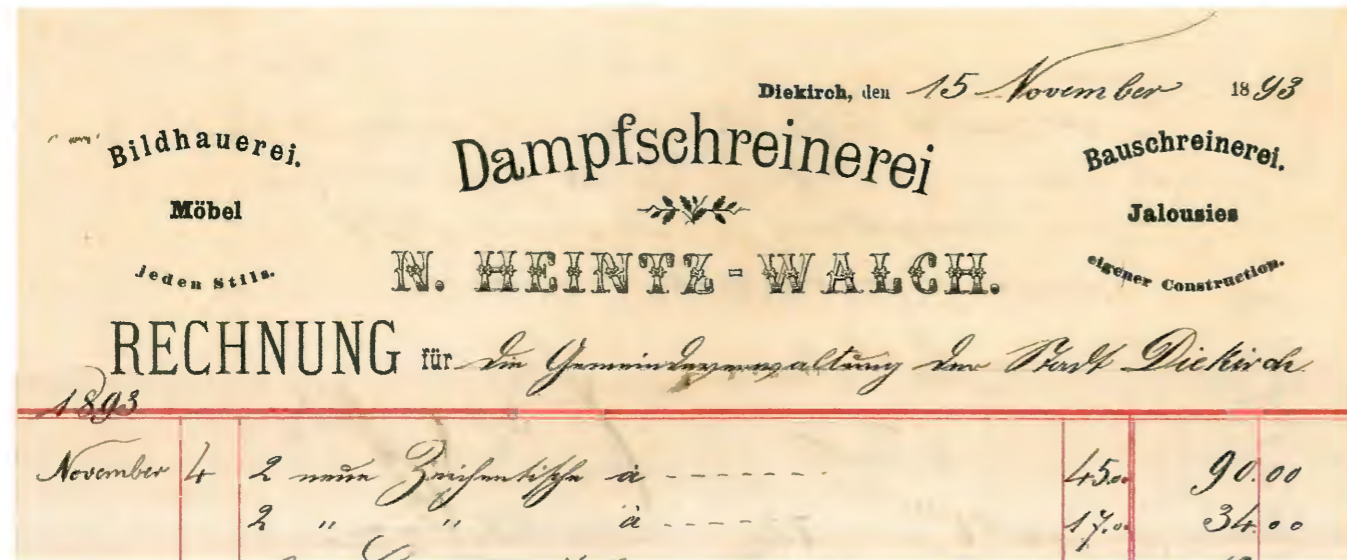 Diekirch, den 15 November 1893
Bildhauerei.
Möbel
jeden Stils.
Dampfschreinerei
N. HEINTZ-WALCH.
Bauschreinerei.
Jalousies
eigener Construction.
RECHNUNG für die Gemeindeverwaltung der Stadt Diekirch
1893
November 4 2 neue Zeichentische à ------- 45.00 90.00
2 " " à ----- 17.00 34.00